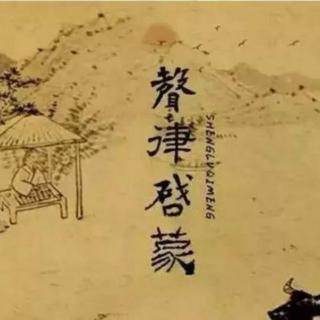 聲律啓蒙
SHENGLVQIMENG